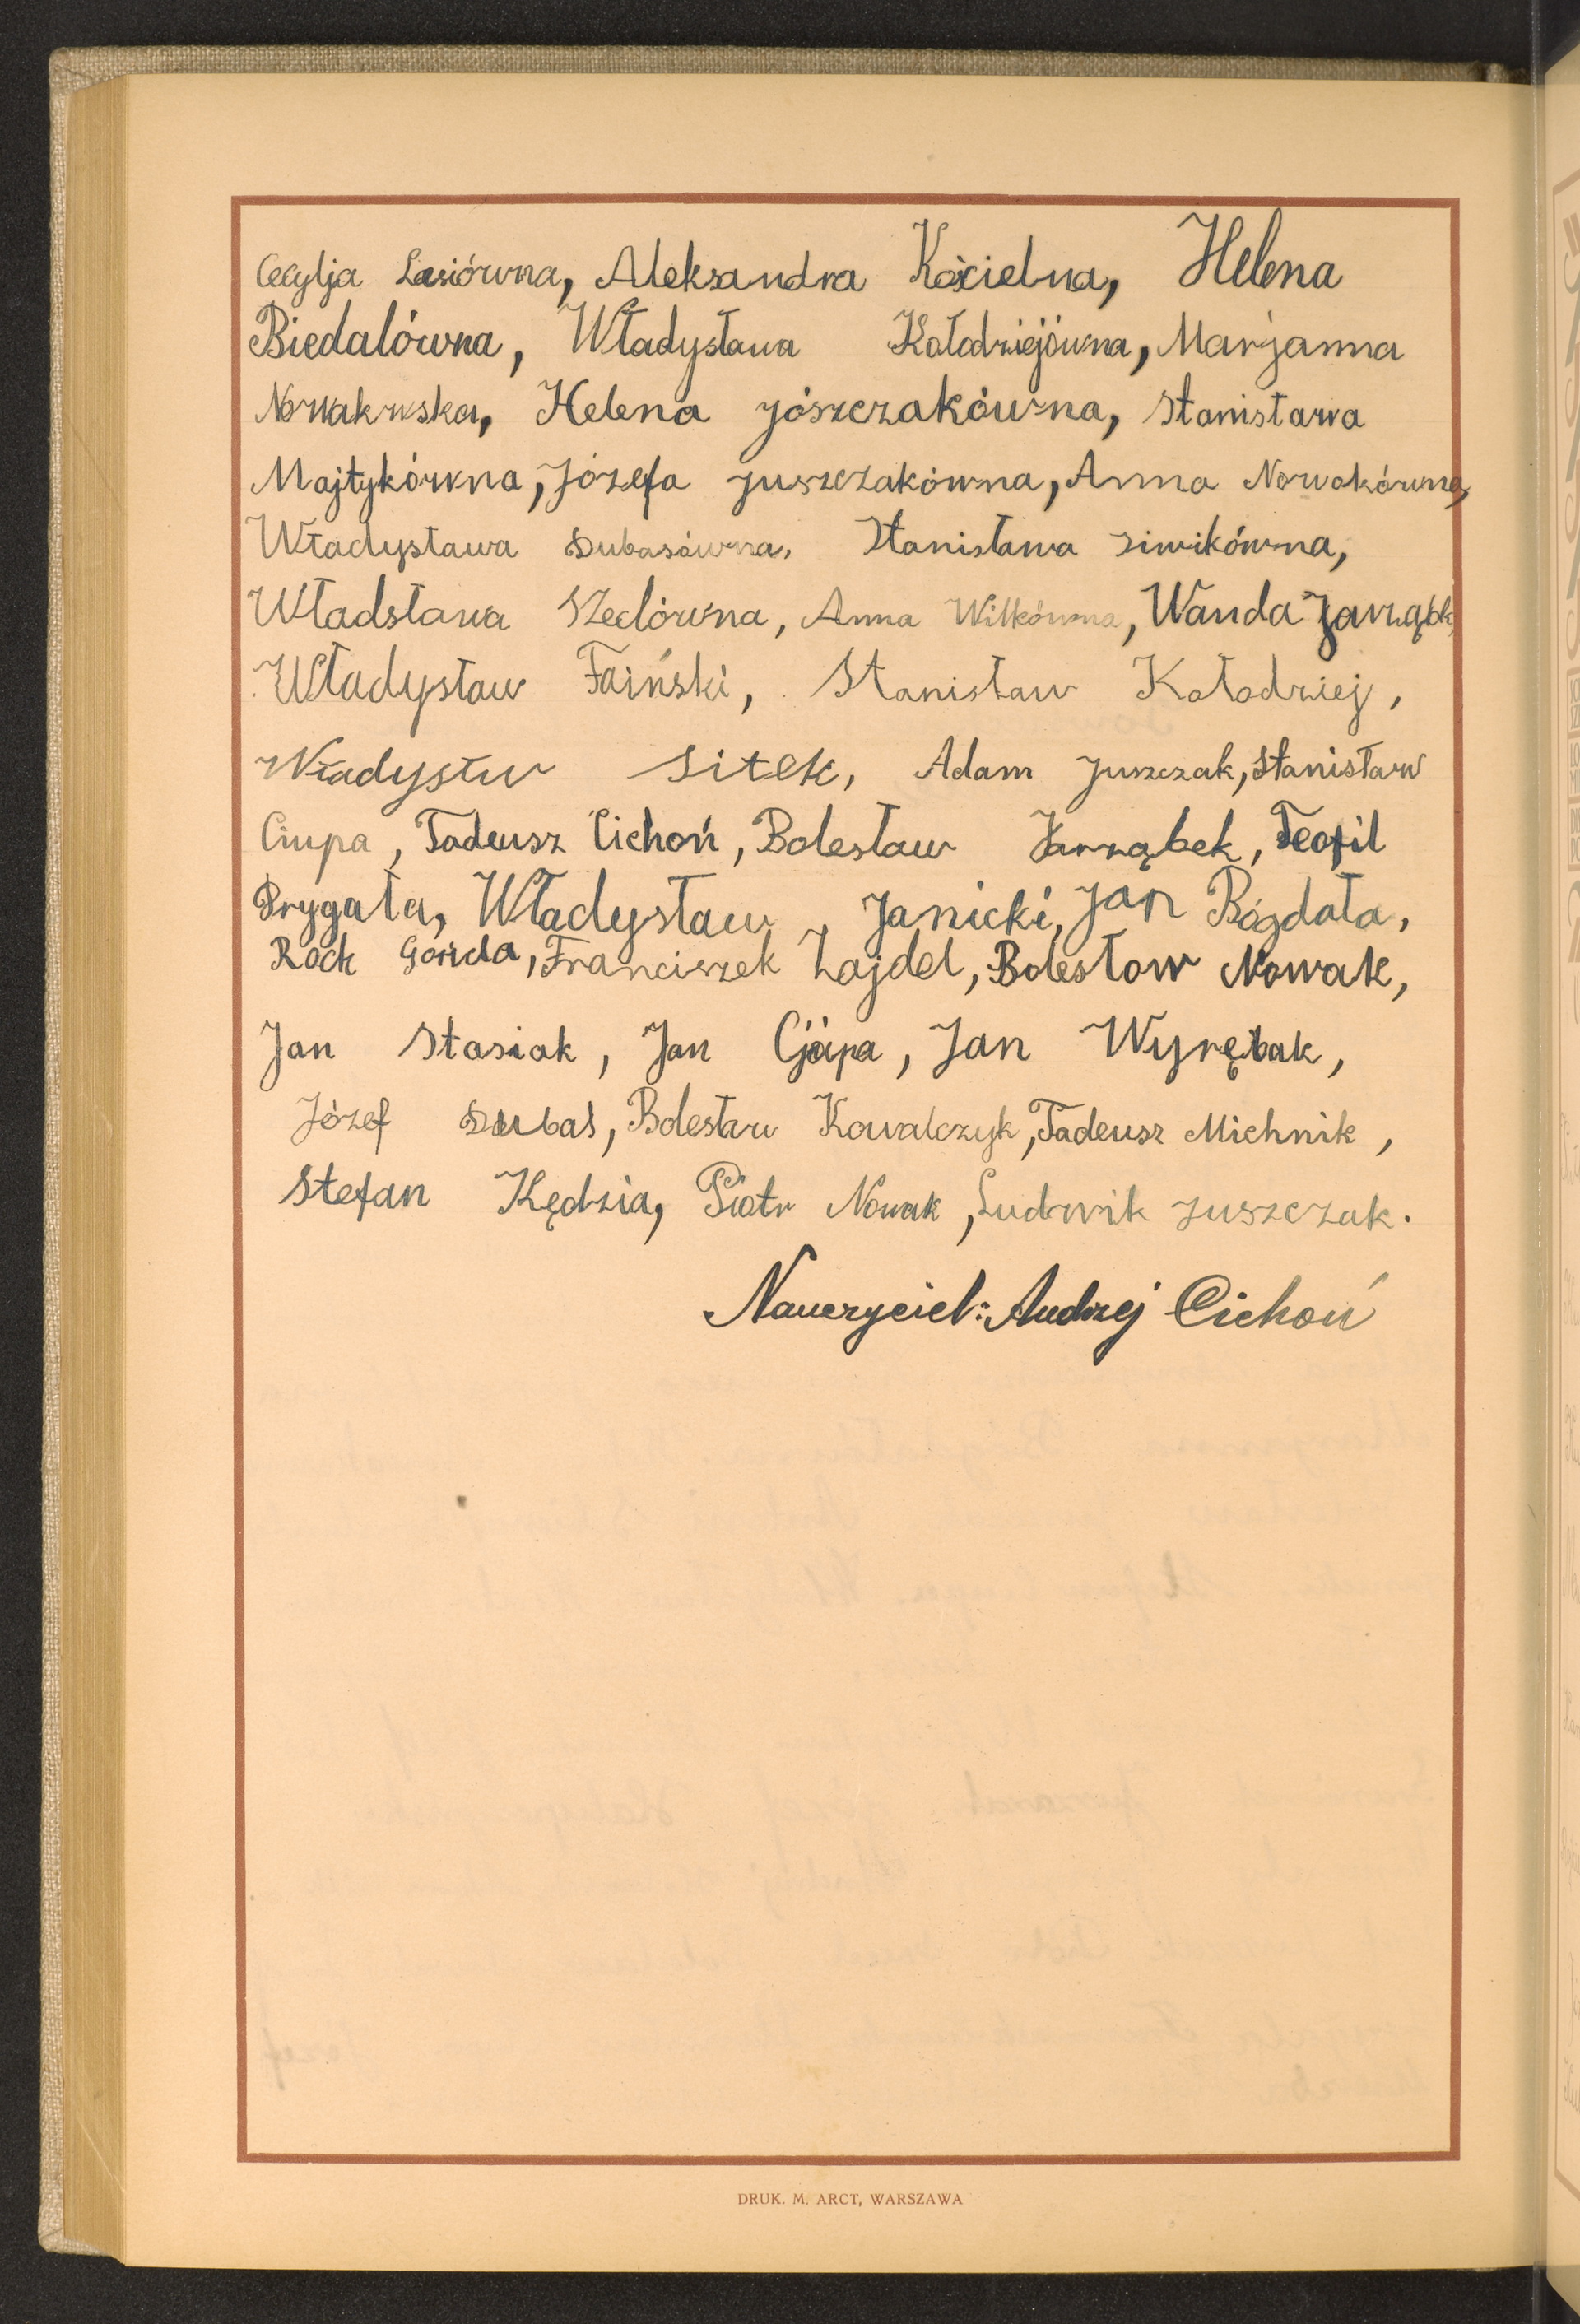 Cecylja Lasiówna, Aleksandra Kościelna, Helena
Biedalówna, Władysława Kołodziejówna, Marjanna
Nowakowska, Helena Jószczakówna, Stanisława
Majtykówna, Józefa Juszczakówna, Anna Nowakówna,
Władysława Dubasówna, Stanisława Siwikówna,
Władsława Szedówna, Anna Wilkówna, Wanda Jarząbk,
Władysław Faiński, Stanisław Kołodziej,
Władystw Sitek, Adam Juszczak, Stanisław
Ciupa, Tadeusz Cichoń, Bolesław Jarząbek, Teofil
Prygała, Władysław Janicki, Jan Bógdała,
Roch Gorda, Franciszek Zajdel, Bolesłow Nowak,
Jan Stasiak, Jan Cjópa, Jan Wyrębak,
Józef Dubas, Bolesław Kowalczyk, Tadeusz Michnik,
Stefan Kędzia, Piotr Nowak, Ludwik Juszczak.
Nauczyciel: Andrzej Cichoń
DRUK. M. ARCT, WARSZAWA